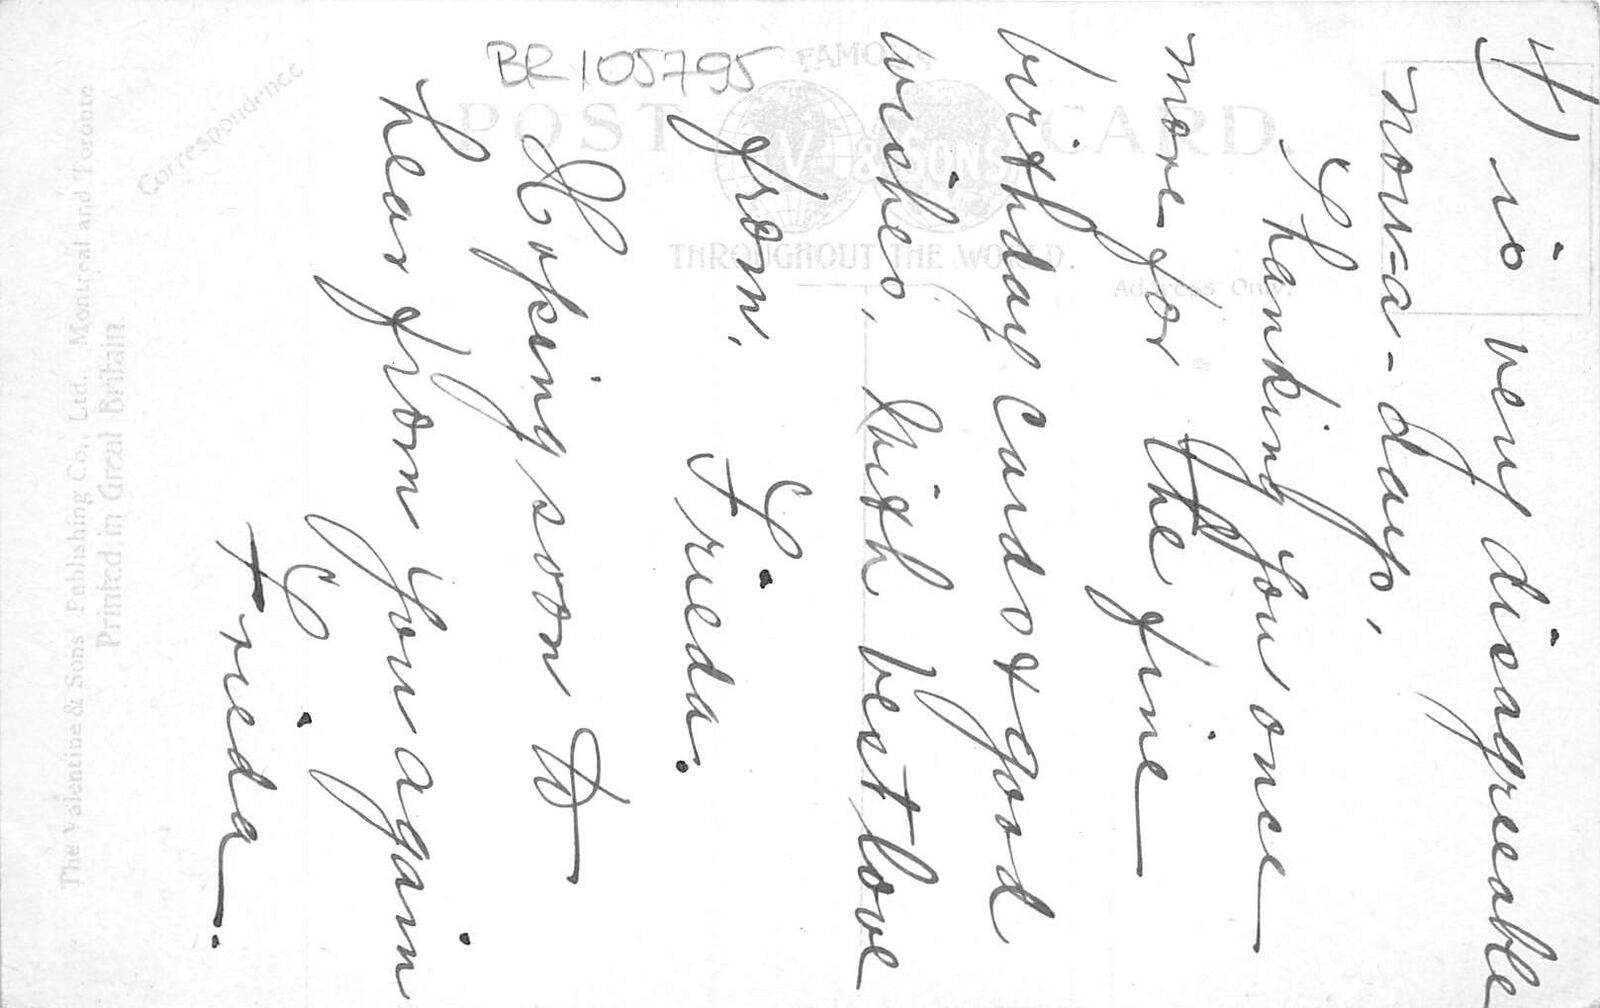 4) is very disagreeable
now-a-days.
Thanking you once
more for the fine
birthday cards & good
wishes, with best love
from, Frieda.
Hoping soon to
hear from you again
Frieda.
BR 105795
FAMOUS
POST CARD.
V. & SONS
THROUGHOUT THE WORLD.
Address Only.
Correspondence
The Valentine & Sons Publishing Co., Ltd. Montreal and Toronto
Printed in Great Britain